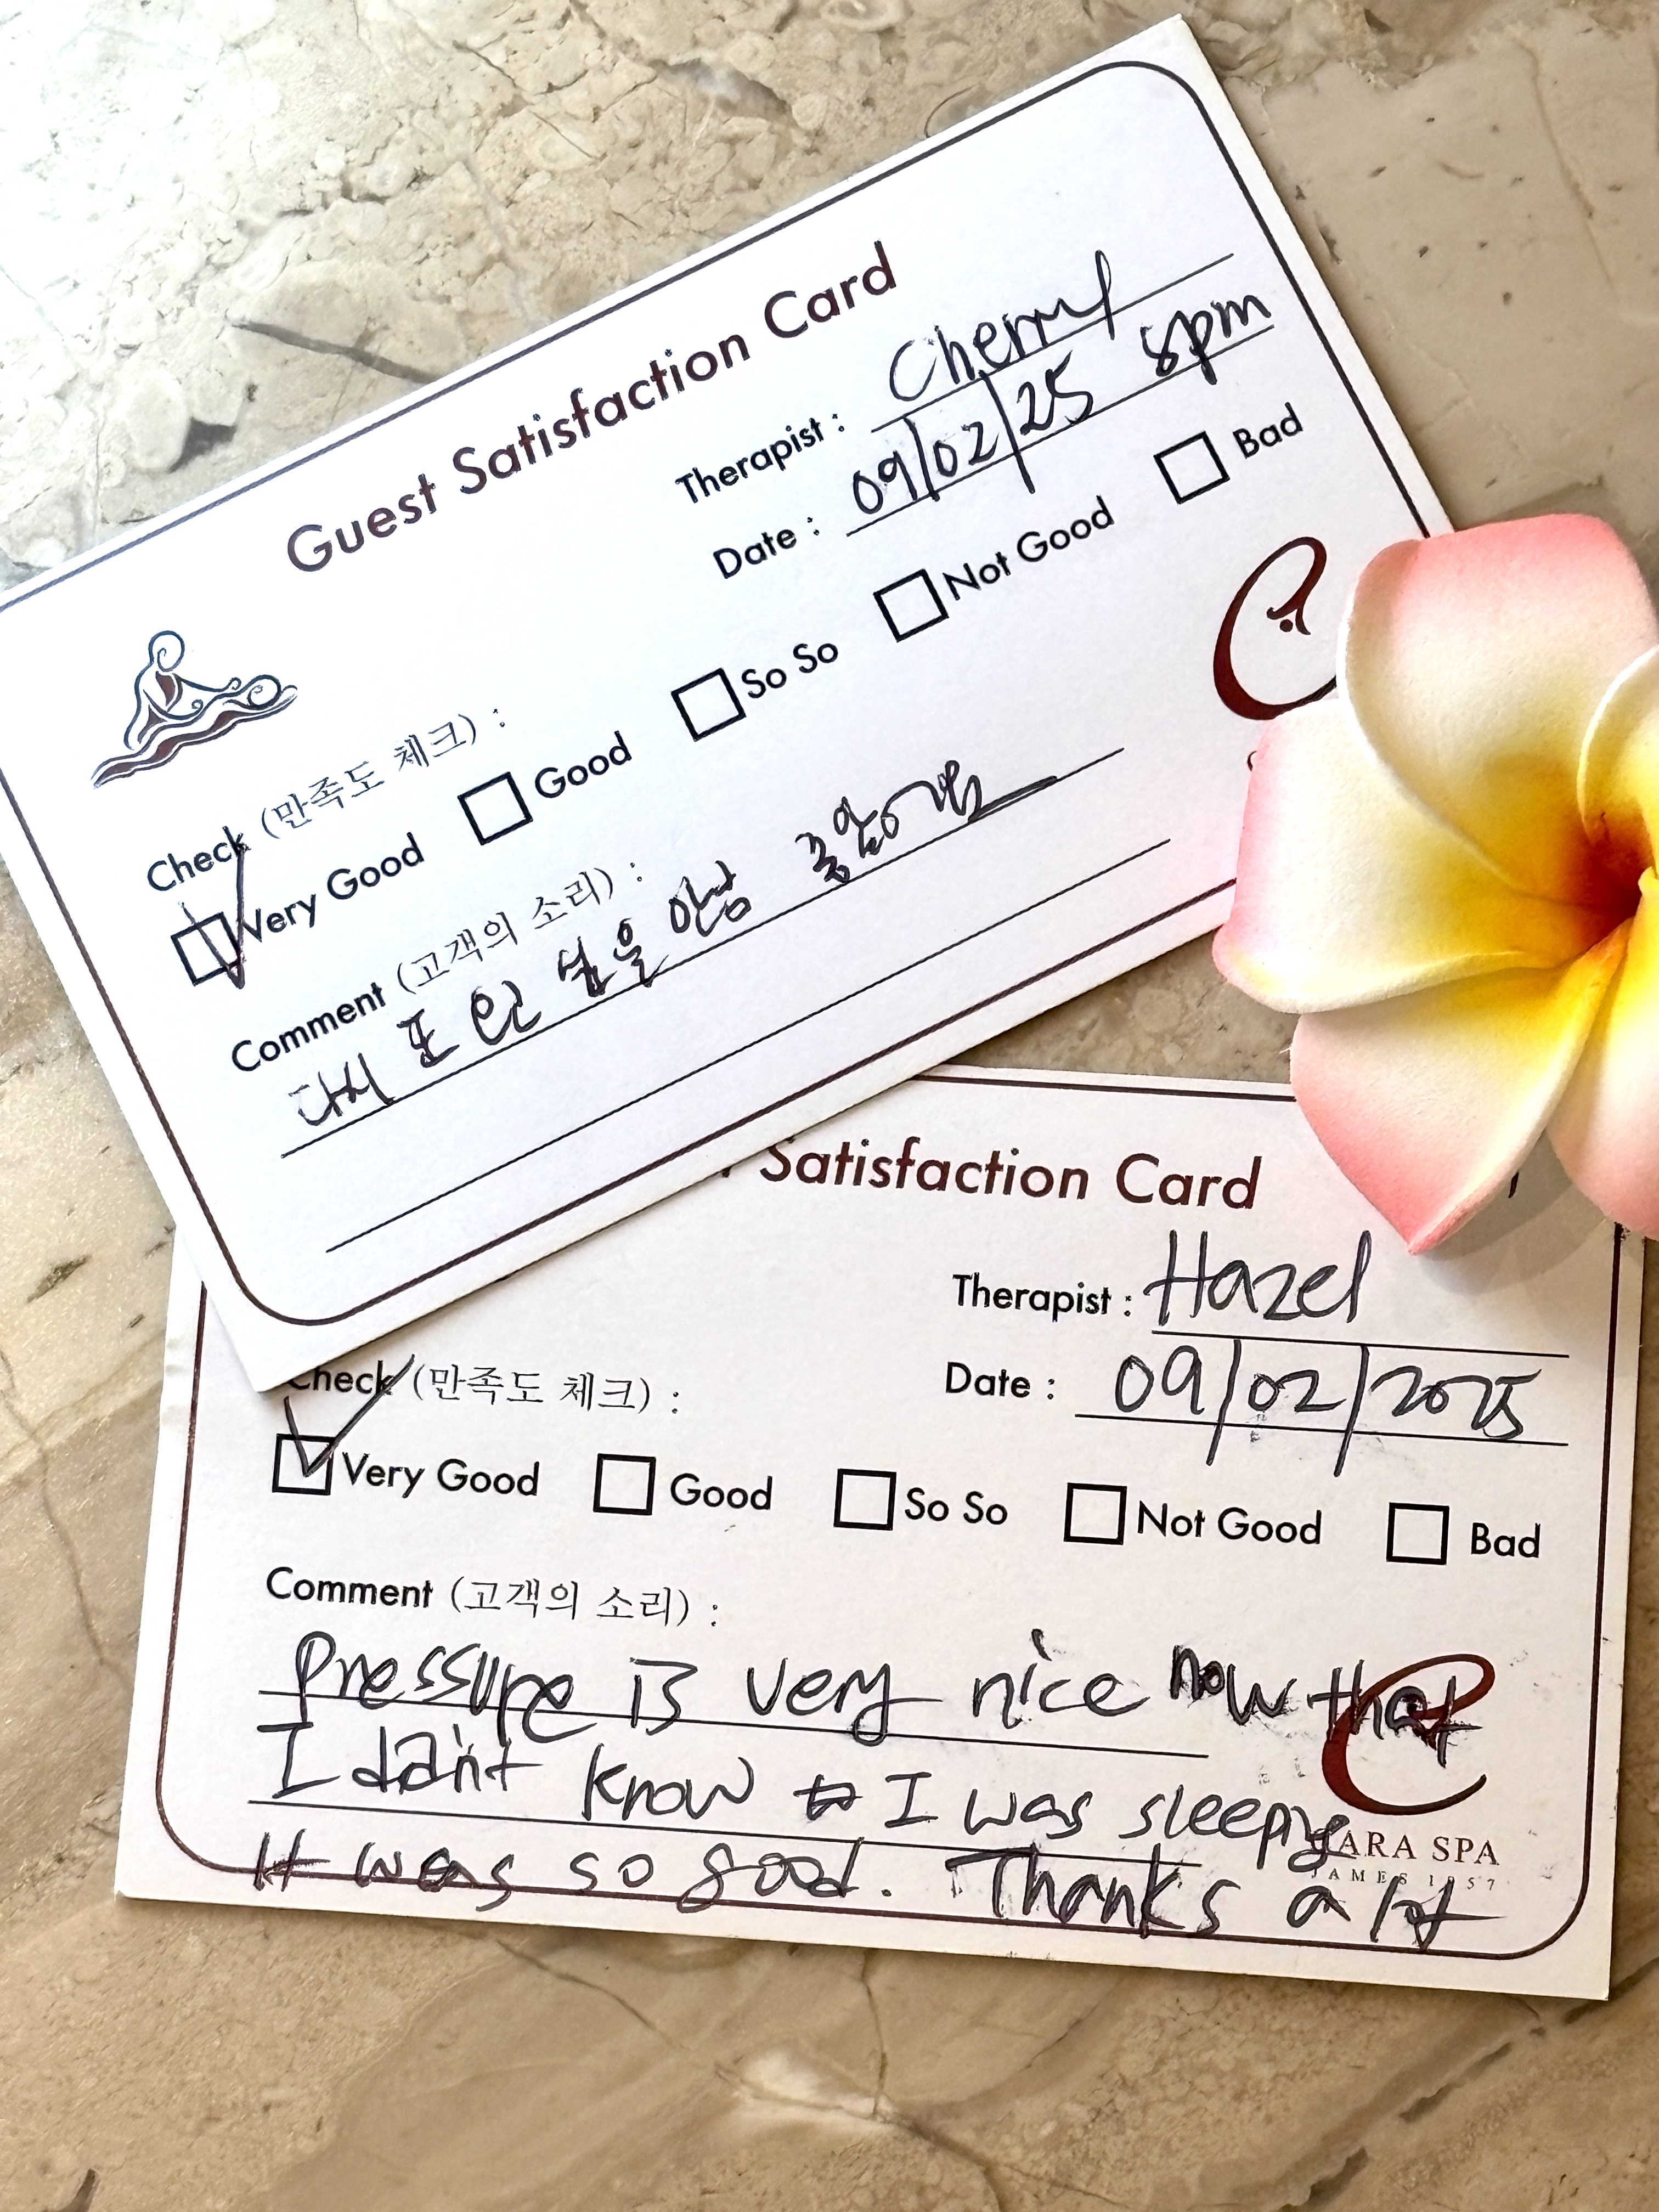 Guest Satisfaction Card
Therapist : Cherryl
Date : 09/02/25 8pm
Check (만족도 체크) :
Very Good Good So So Not Good Bad
Comment (고객의 소리) :
다시
Satisfaction Card
Therapist : Hazel
Date : 09/02/2025
Check (만족도 체크) :
Very Good Good So So Not Good Bad
Comment (고객의 소리) :
Pressure is very nice now that
I didn't know I was sleeping
It was so good. Thanks a lot
ARA SPA
JAMES 1957